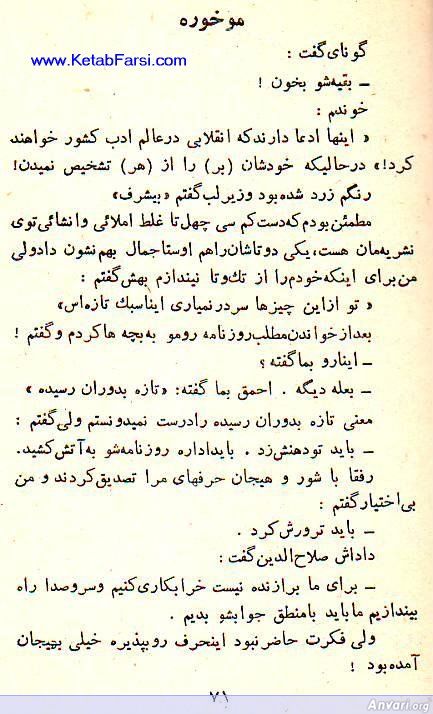 موخوره
گونای گفت :
www.KetabFarsi.com
ــ بقیه‌شو بخون !
خوندم :
« اینها ادعا دارند که انقلابی در عالم ادب کشور خواهند
کرد!» درحالیکه خودشان (بر) را از (هر) تشخیص نمیدن!
رنگم زرد شده بود وزیر لب گفتم «بیشرف»
مطمئن بودم که دست کم سی چهل تا غلط املائی وانشائی توی
نشریه‌مان هست، یکی دوتاشان را هم اوستاجمال بهم نشون داد ولی
من برای اینکه خودم را از تك وتا نیندازم بهش گفتم :
« تو ازاین چیزها سر در نمیاری این اسبك تازه‌اس»
بعد از خواندن مطلب روزنامه رومو به بچه ها کردم و گفتم !
ــ اینارو بما گفته ؟
ــ بعله دیگه . احمق بما گفته: «تازه بدوران رسیده »
معنی تازه بدوران رسیده رادرست نمیدونستم ولی گفتم :
ــ باید تودهنش زد . باید اداره روزنامه‌شو به آتش کشید.
رفقا با شور و هیجان حرفهای مرا تصدیق کردند و من
بی‌اختیار گفتم :
ــ باید ترورش کرد .
داداش صلاح‌الدین گفت:
ــ برای ما برازنده نیست خرابکاری کنیم وسروصدا راه
بیندازیم ما باید با منطق جوابشو بدیم .
ولی فکرت حاضر نبود اینحرف رو بپذیره خیلی بهیجان
آمده بود !
۷۱
Anvari.org